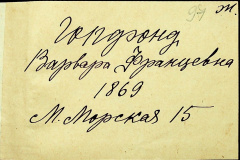 94 Ж.
Гопфонд
Варвара Францевна
1869
М. Морская 15